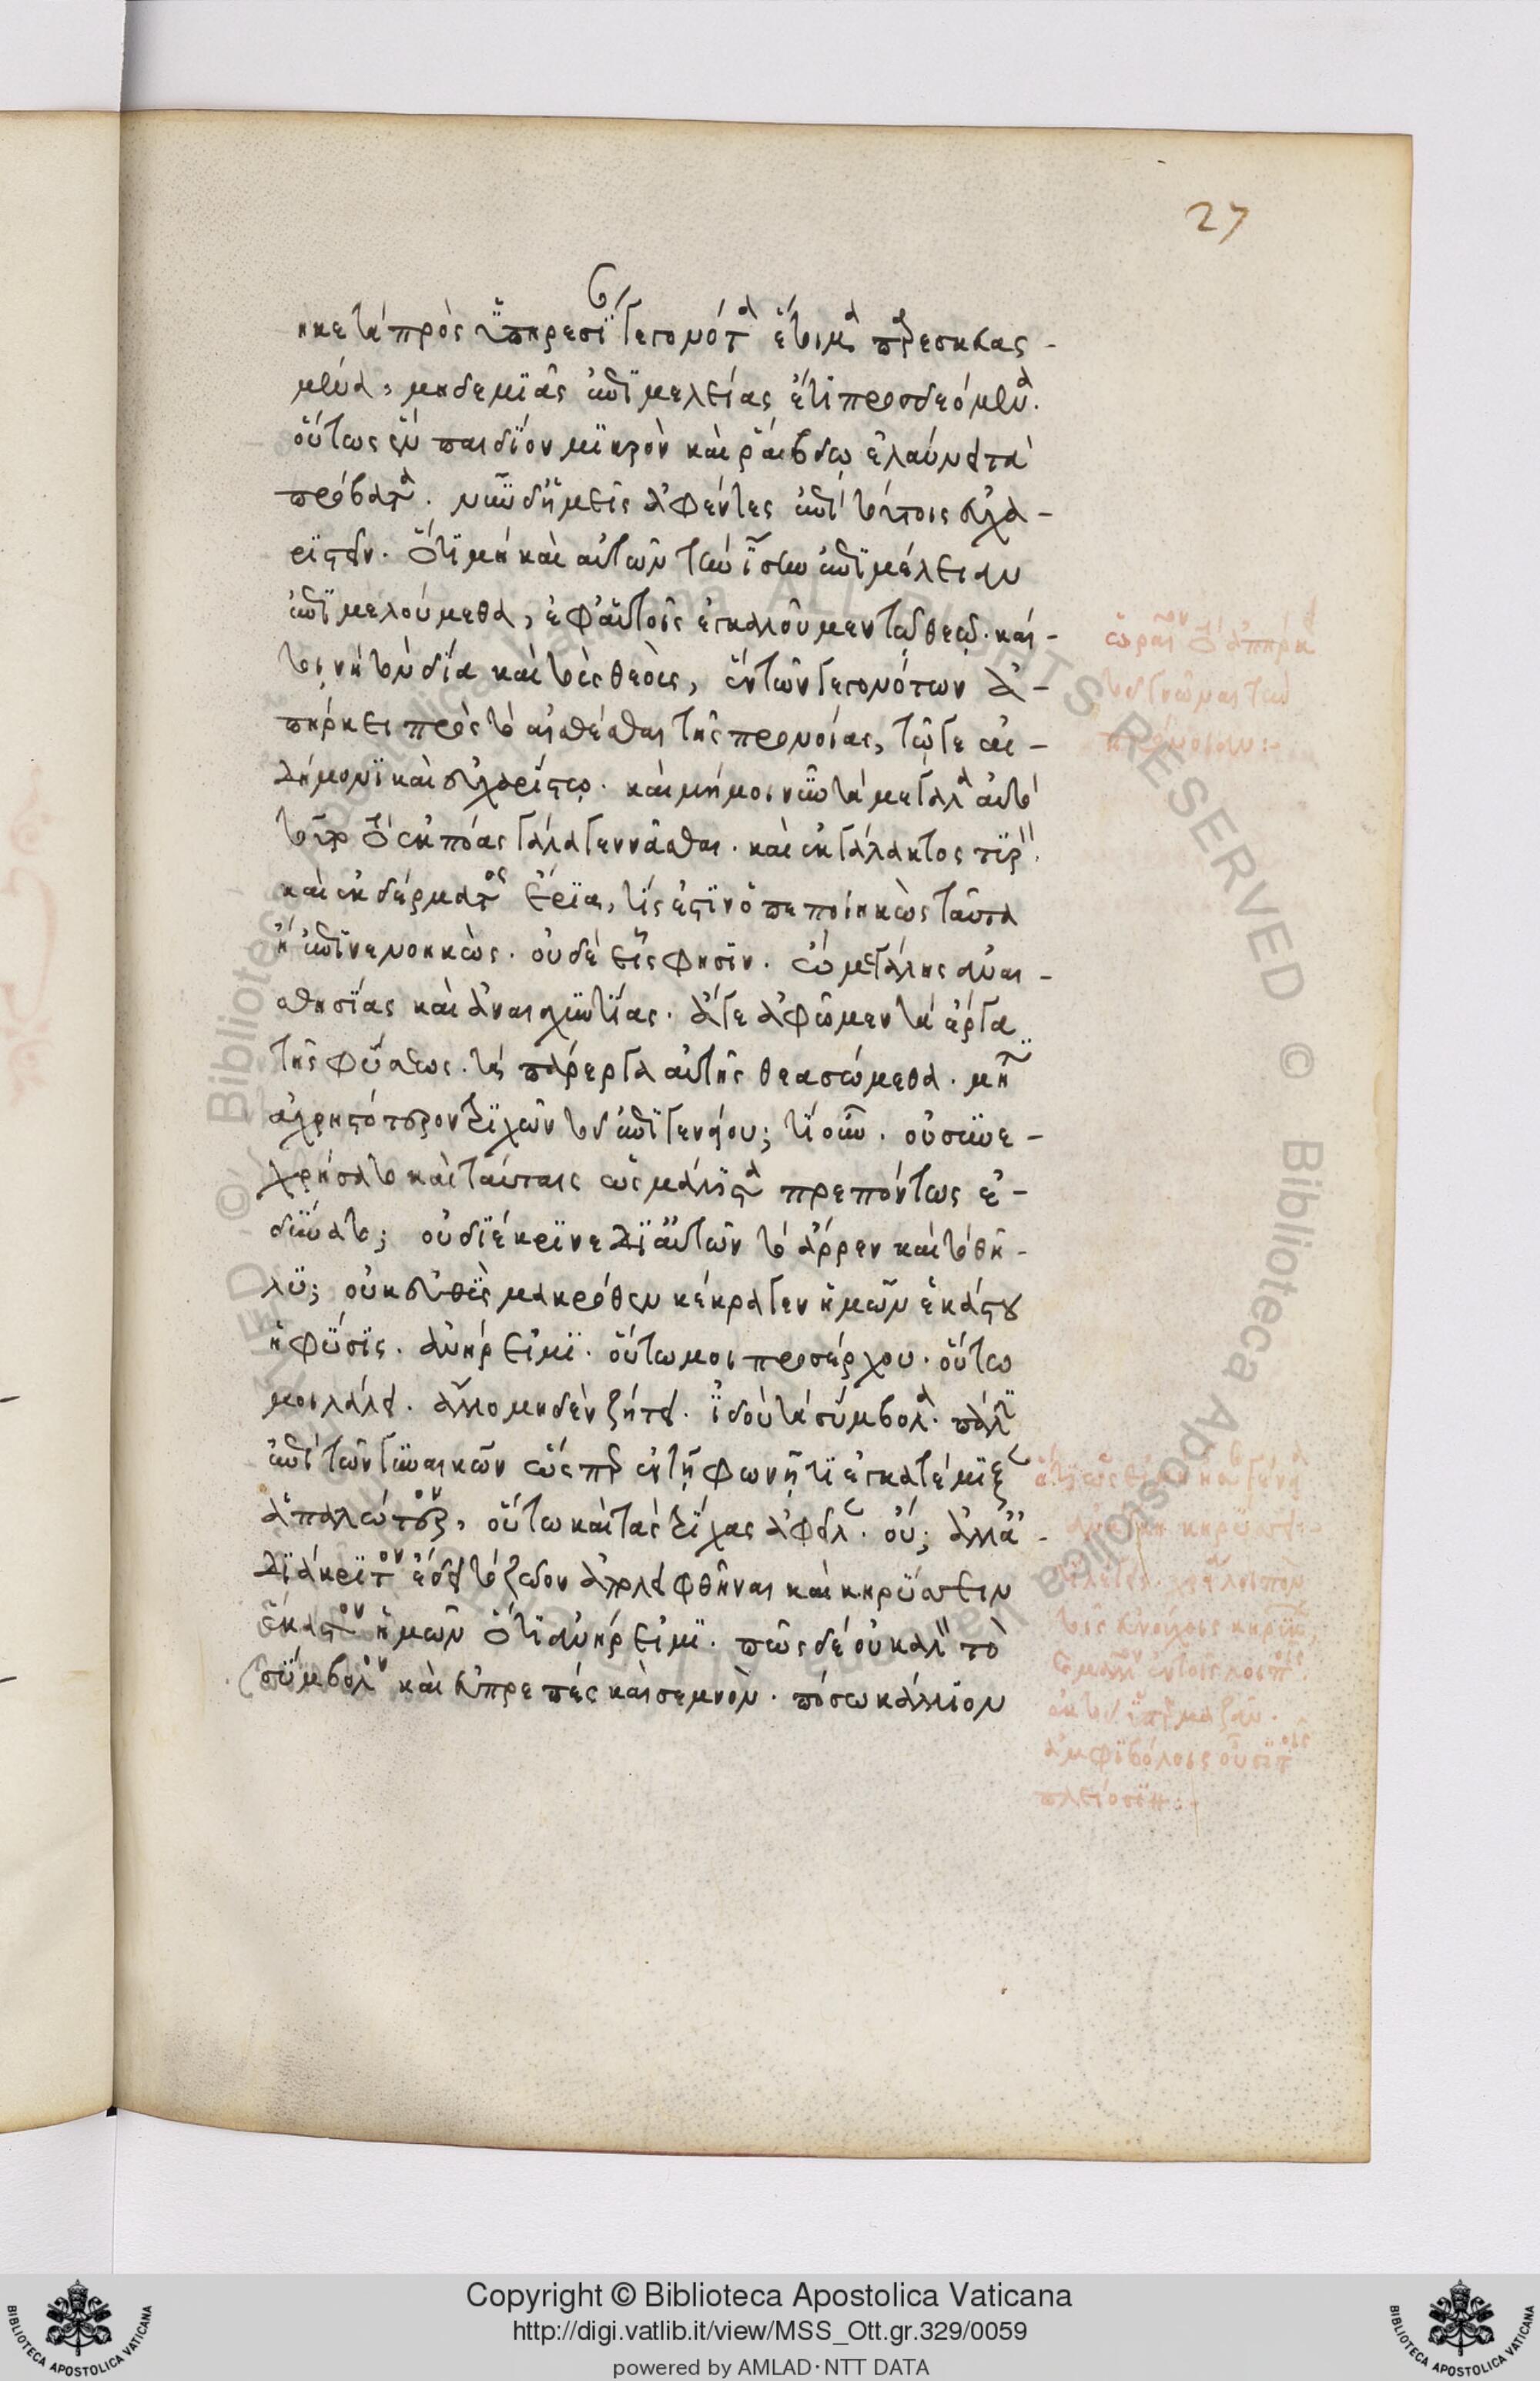 27
ηκε τὰ πρὸς ὑπηρεσίαν γεγονότα ἕτοιμα παρεσκευας-
μένα, μηδεμιᾶς ἐπιμελείας ἔτι προσδεόμενα.
οὕτως ἓν παιδίον μικρὸν καὶ ῥάβδῳ ἐλαύνει τὰ
πρόβατα. νῦν δ' ἡμεῖς ἀφέντες ἐπὶ τούτοις εὐχα-
ριστεῖν. ὅτι μὴ καὶ αὐτῶν τὴν ἴσην ἐπιμέλειαν
ἐπιμελούμεθα, ἐφ' αὑτοῖς ἐγκαλοῦμεν τῷ θεῷ. καί-
τοι νὴ τὸν δία καὶ τοὺς θεοὺς, ἓν τῶν γεγονότων ἀ-
πήρκει πρὸς τὸ αἰσθέσθαι τῆς προνοίας, τῷ γε αἰ-
δήμονι καὶ εὐχαρίστῳ. καὶ μή μοι νῦν τὰ μεγάλα αὐτὸ
τοῦτο τὸ ἐκ πόας γάλα γεννᾶσθαι. καὶ ἐκ γάλακτος τυρόν.
καὶ ἐκ δέρματος ἔρια, τίς ἐστιν ὁ πεποιηκὼς ταῦτα
ἢ ἐπινενοηκώς. οὐδὲ εἷς φησιν. ὢ μεγάλης ἀναι-
σθησίας καὶ ἀναισχυντίας. ἄγε ἀφῶμεν τὰ ἔργα
τῆς φύσεως. τὰ πάρεργα αὐτῆς θεασώμεθα. μή τι
ἀχρηστότερον τριχῶν τῶν ἐπὶ γενείου; τί οὖν. οὐ συνε-
χρήσατο καὶ ταύταις ὡς μάλιστα πρεπόντως ἐ-
δύνατο; οὐ διέκρινε δι' αὐτῶν τὸ ἄρρεν καὶ τὸ θῆ-
λυ; οὐκ εὐθὺς μακρόθεν κέκραγεν ἡμῶν ἑκάστου
ἡ φύσις. ἀνήρ εἰμι. οὕτω μοι προσέρχου. οὕτω
μοι λάλει. ἄλλο μηδὲν ζήτει. ἰδοὺ τὰ σύμβολα. πάλιν
ἐπὶ τῶν γυναικῶν ὥσπερ ἐν τῇ φωνῇ τι ἐγκατέμιξεν
ἁπαλώτερον, οὕτω καὶ τὰς τρίχας ἀφεῖλεν. οὔ; ἀλλὰ
διάκριτον ἔδει τὸ ζῶον ἀπολειφθῆναι καὶ κηρύσσειν
ἕκαστον ἡμῶν ὅτι ἀνήρ εἰμι. πῶς δὲ οὐ καλὸν τὸ
σύμβολον καὶ εὐπρεπὲς καὶ σεμνόν. πόσῳ κάλλιον
Copyright © Biblioteca Apostolica Vaticana
http://digi.vatlib.it/view/MSS_Ott.gr.329/0059
powered by AMLAD·NTT DATA